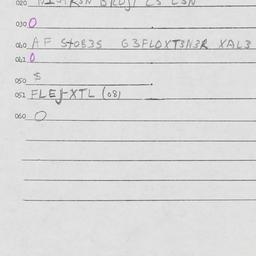 020
030 0
040 AF St0835 G3FLOXT3N3R XAL3
041 0
050 $
051 FLEJ-XTL (08)
060 O